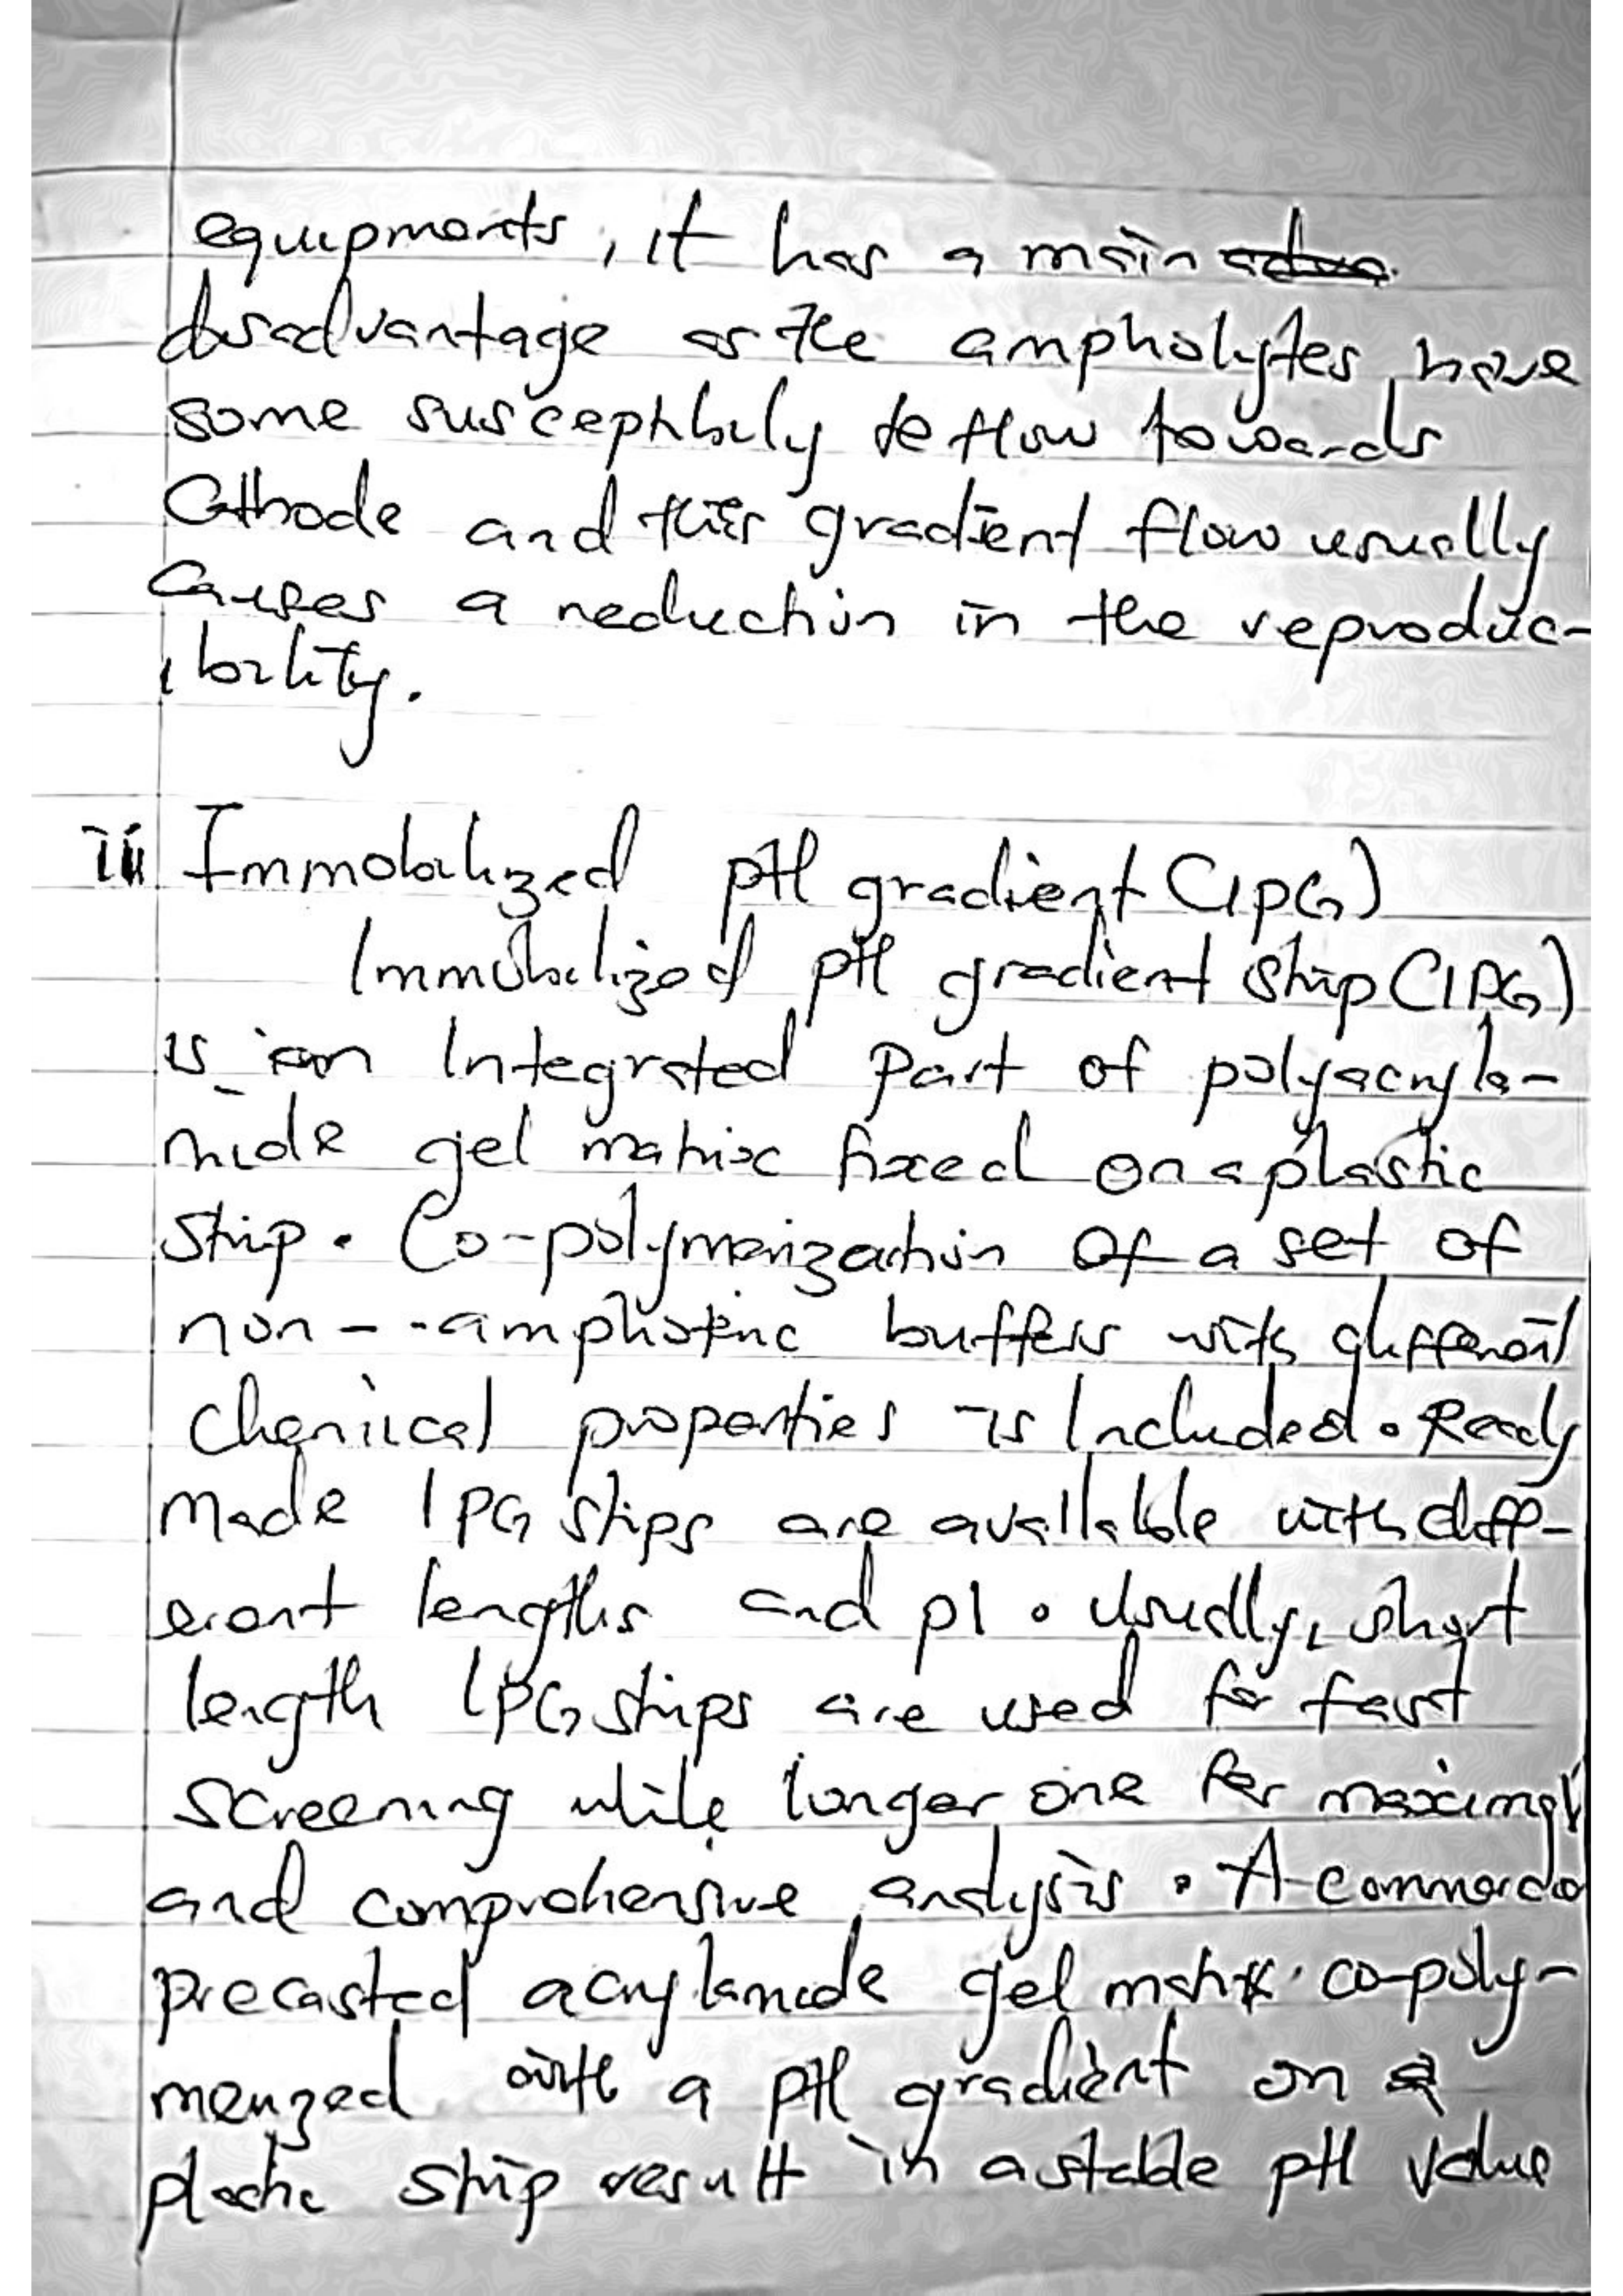 equipments, it has a main
disadvantage as the ampholytes have
some susceptibily to flow towards
Cathode and this gradient flow usually
causes a reduction in the reproduc-
ibility.
iii Immobilized pH gradient (IPG)
Immobilized pH gradient strip (IPG)
is an Integrated Part of polyacryla-
mide gel matrix fixed on a plastic
strip. Co-polymerization of a set of
non--amphoteric buffers with different
chemical properties is Included. Ready
made IPG strips are available with diff-
erent lengths and pI. Usually, short
length IPG strips are used for fast
screening while longer one for maximal
and comprehensive analysis. A commercia
precasted acrylamide gel matrix co-poly-
merized with a pH gradient on a
plastic strip result in a stable pH value